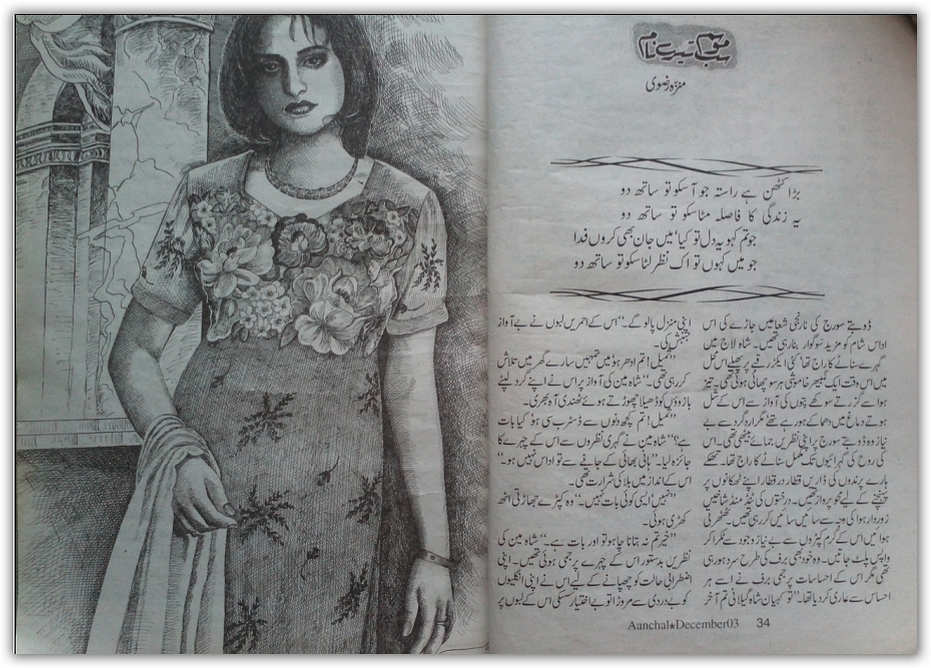 سب موسم تیرے نام
منزہ رضوی
بڑا کٹھن ہے راستہ جو آ سکو تو ساتھ دو
یہ زندگی کا فاصلہ مٹا سکو تو ساتھ دو
جو تم کہو یہ دل تو کیا، میں جان بھی کروں فدا
جو میں کہوں تو اک نظر لٹا سکو تو ساتھ دو
ڈوبتے سورج کی نارنجی شعاعیں جاڑے کی اس
اداس شام کو مزید سوگوار بنا رہی تھیں۔ شاہ لاج میں
گہرے سناٹے کا راج تھا، کئی ایکڑ رقبے پر پھیلے اس محل
میں اس وقت ایک گمبھیر خاموشی ہر سو چھائی ہوئی تھی۔ تیز
ہوا سے گزرتے سوکھے پتوں کی آواز سے اس کے شل
ہوتے دماغ میں دھماکے ہو رہے تھے مگر ارد گرد سے بے
نیاز وہ ڈوبتے سورج پر اپنی نظریں جمائے بیٹھی تھی۔ اس
کی روح کی گہرائیوں تک مکمل سناٹے کا راج تھا۔ تھکے
ہارے پرندوں کی ڈاریں قطار در قطار اپنے ٹھکانوں پر
پہنچنے کے لیے محو پرواز تھیں۔ درختوں کی ٹنڈ منڈ شاخیں
زوردار ہوا کی وجہ سے سائیں سائیں کر رہی تھیں۔ ٹھٹھرتی
ہوائیں اس کے گرم کپڑوں سے بے نیاز وجود سے ٹکرا کر
واپس پلٹ جاتیں۔ وہ خود بھی برف کی طرح سرد ہو رہی
تھی مگر اس کے احساسات پر جمی برف نے اسے ہر
احساس سے عاری کر دیا تھا۔ ”تو کہیان شاہ گیلانی تم آخر
اپنی منزل پا لو گے۔“ اس کے احمریں لبوں نے بے آواز
جنبش کی۔
”میل! تم ادھر ہو میں تمہیں سارے گھر میں تلاش
کر رہی تھی۔“ شاہ مین کی آواز پر اس نے اپنے گرد لپٹے
بازوؤں کو ڈھیلا چھوڑتے ہوئے ٹھنڈی آہ بھری۔
”میل! تم کچھ دنوں سے ڈسٹرب سی ہو، کیا بات
ہے؟“ شاہ مین نے گہری نظروں سے اس کے چہرے کا
جائزہ لیا۔ ”ہانی بھائی کے جانے سے تو اداس نہیں ہو۔“
اس کے انداز میں بلا کی شرارت تھی۔
”نہیں ایسی کوئی بات نہیں۔“ وہ کپڑے جھاڑتی اٹھ
کھڑی ہوئی۔
”خیر تم نہ بتانا چاہو تو اور بات ہے۔“ شاہ مین کی
نظریں بدستور اس کے چہرے پر جمی ہوئی تھیں۔ اپنی
اضطرابی حالت کو چھپانے کے لیے اس نے اپنی انگلیوں
کو بے دردی سے مروڑا تو بے اختیار سسکی اس کے لبوں پر
Aanchal★December03 34